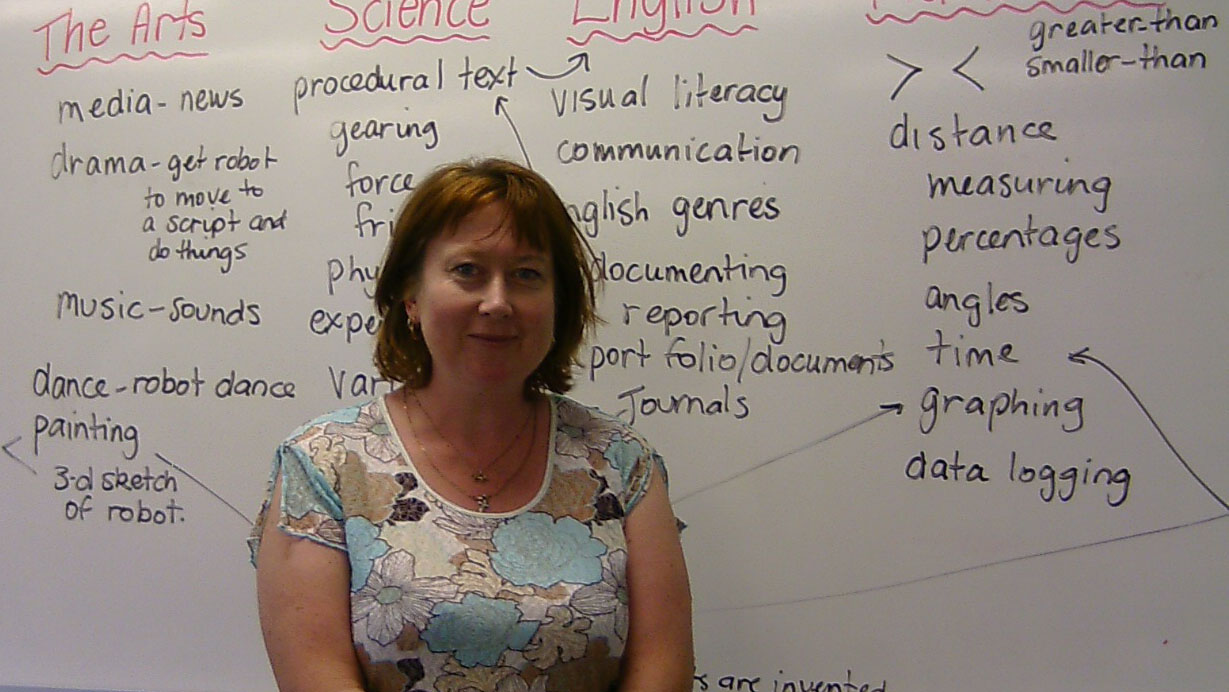 The Arts
media - news
drama - get robot
to move to
a script and
do things
music - sounds
dance - robot dance
painting
3-d sketch
of robot.
Science
procedural text
gearing
force
English
visual literacy
communication
genres
documenting
reporting
port folio/documents
Journals
greater-than
> < smaller-than
distance
measuring
percentages
angles
time
graphing
data logging
are invented